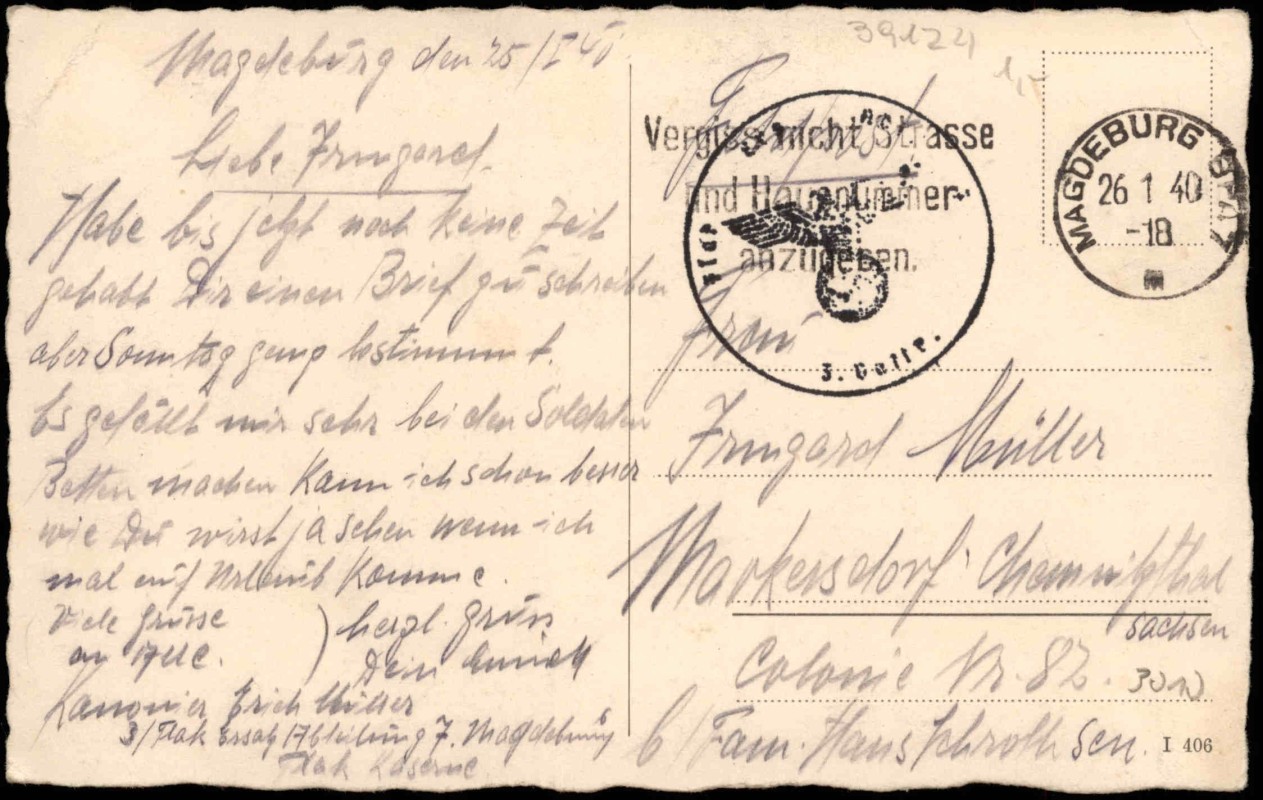 Magdeburg den 25/I 40
Liebe Irmgard.
Habe bis jetzt noch keine Zeit
gehabt Dir einen Brief zu schreiben
aber Sonntag ganz bestimmt.
Es gefällt mir sehr bei den Soldaten
Betten machen kann ich schon besser
wie Du wirst ja sehen wenn ich
mal auf Urlaub komme.
Viele Grüsse
an Alle.
) herzl. Gruss
Dein
Kanonier Erich Müller
3/Flak Ersatz Abteilung 7. Magdeburg
Flak Kaserne
39124
1,-
Feldpost
Vergiss nicht Strasse
und Hausnummer
anzugeben.
3. Battr.
MAGDEBURG
26 1 40
-18
Frau
Irmgard Müller
Markersdorf Chemnitzthal
Sachsen
Colonie Nr. 82.
b/Fam. Hans Schroth sen.
I 406